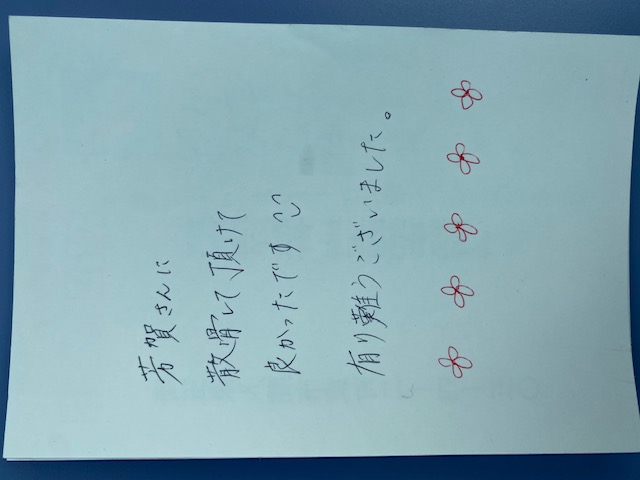 芳賀さんに
散骨して頂けて
良かったです
有り難うございました。